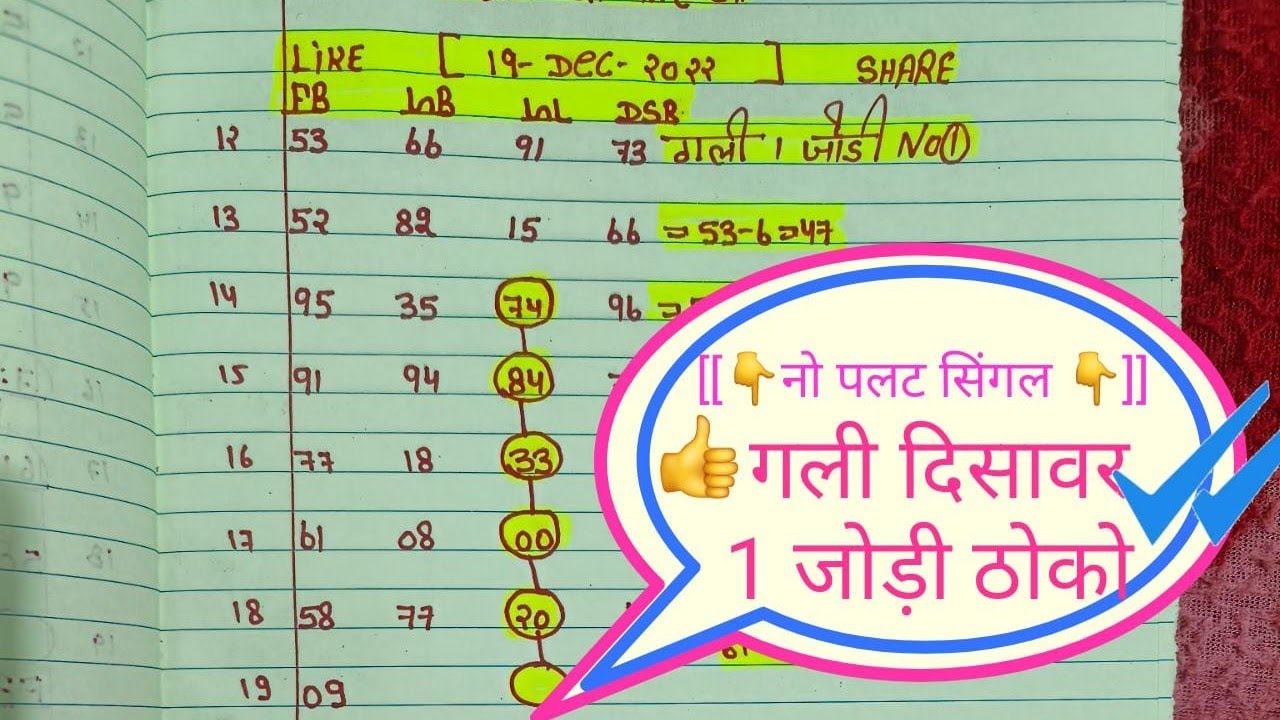 LIKE [ 19- DEC- २०२२ ] SHARE
FB InB InL DSB
12 53 66 91 73 गली 1 जोडी NO ①
13 5२ 82 15 66 = 53-6=47
14 95 35 74 96 =
15 91 94 84
16 77 18 33
17 61 08 00
18 58 77 २०
19 09
[[👇नो पलट सिंगल 👇]]
👍गली दिसावर
1 जोड़ी ठोको